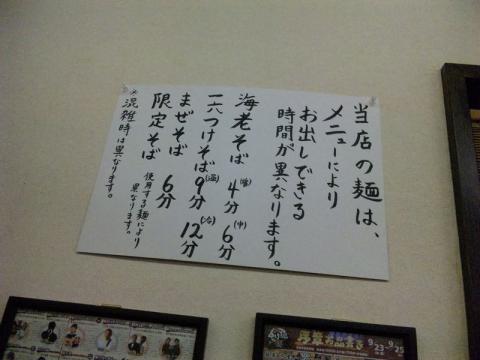 当店の麺は、
メニューにより
お出しできる
時間が異なります。
海老そば (堅)4分 (中)6分
一六つけそば (温)9分 (冷)12分
まぜそば 6分
限定そば 使用する麺により異なります。
※混雑時は異なります。
9/23 9/25